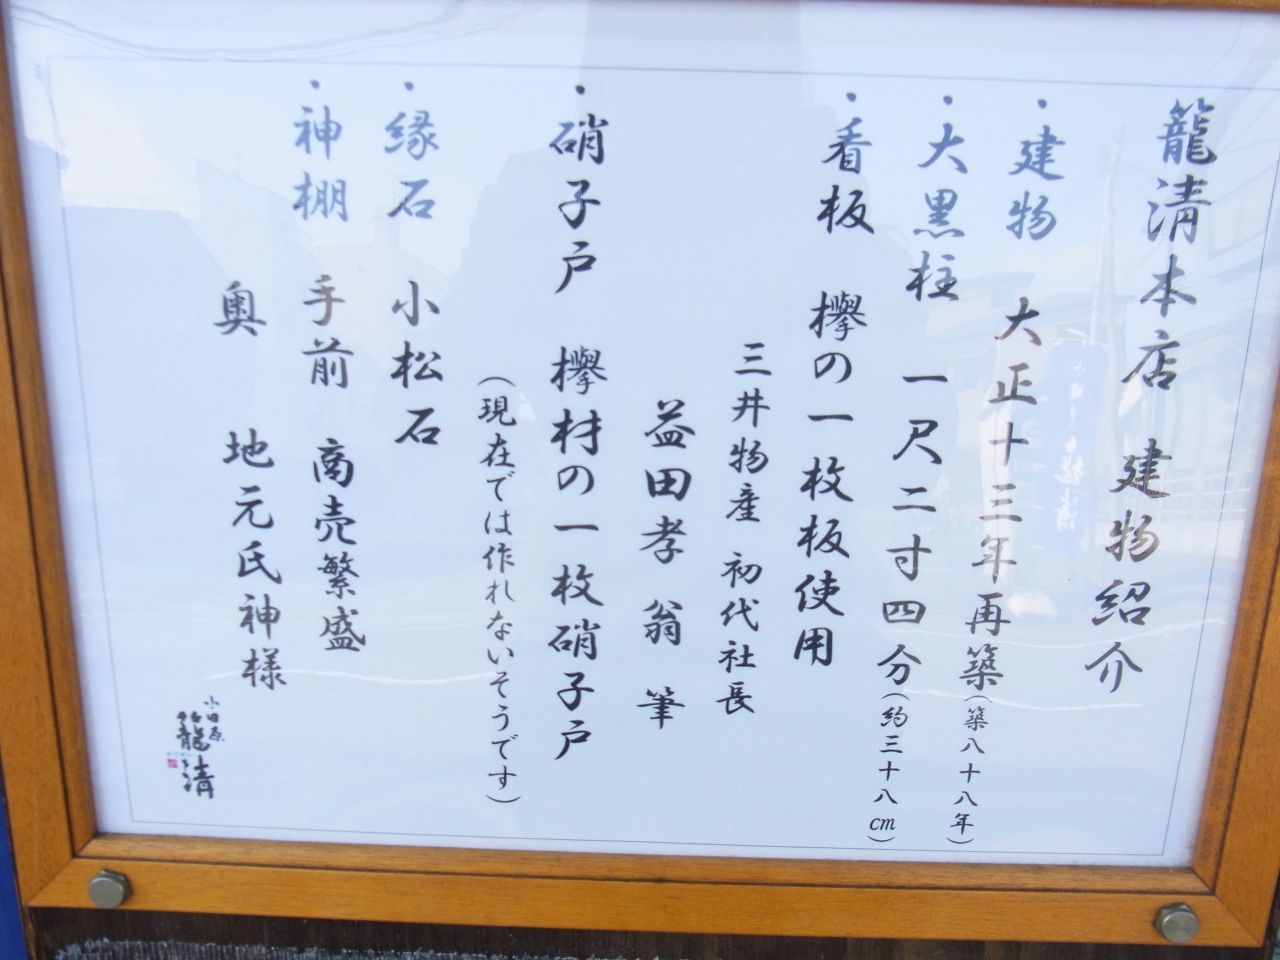 籠清本店 建物紹介
・建物 大正十三年再築（築八十八年）
・大黒柱 一尺二寸四分（約三十八cm）
・看板 欅の一枚板使用
三井物産 初代社長
益田孝 翁 筆
・硝子戸 欅材の一枚硝子戸
（現在では作れないそうです）
・縁石 小松石
・神棚 手前 商売繁盛
奥 地元氏神様
小田原
籠清